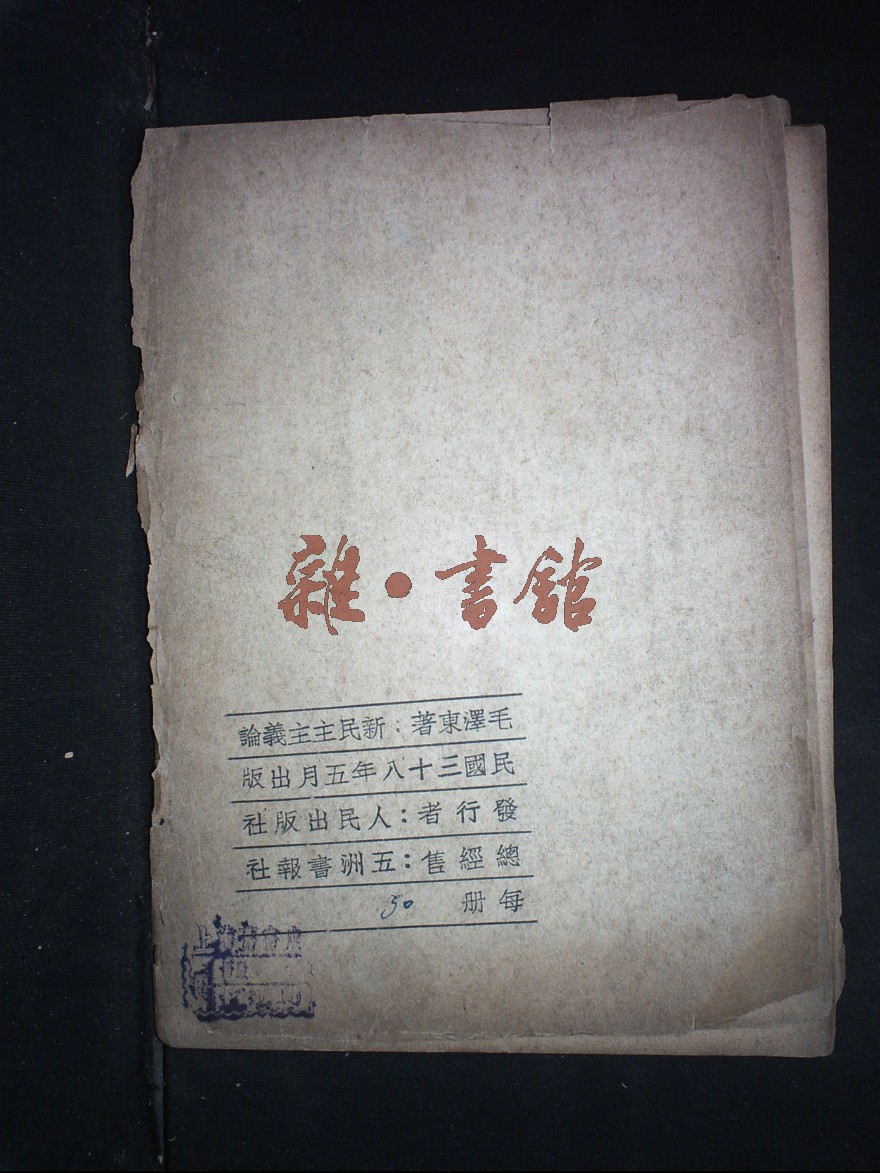 雜·書館
毛澤東著：新民主主義論
民國三十八年五月出版
發行者：人民出版社
總經售：五洲書報社
每册 50
上海